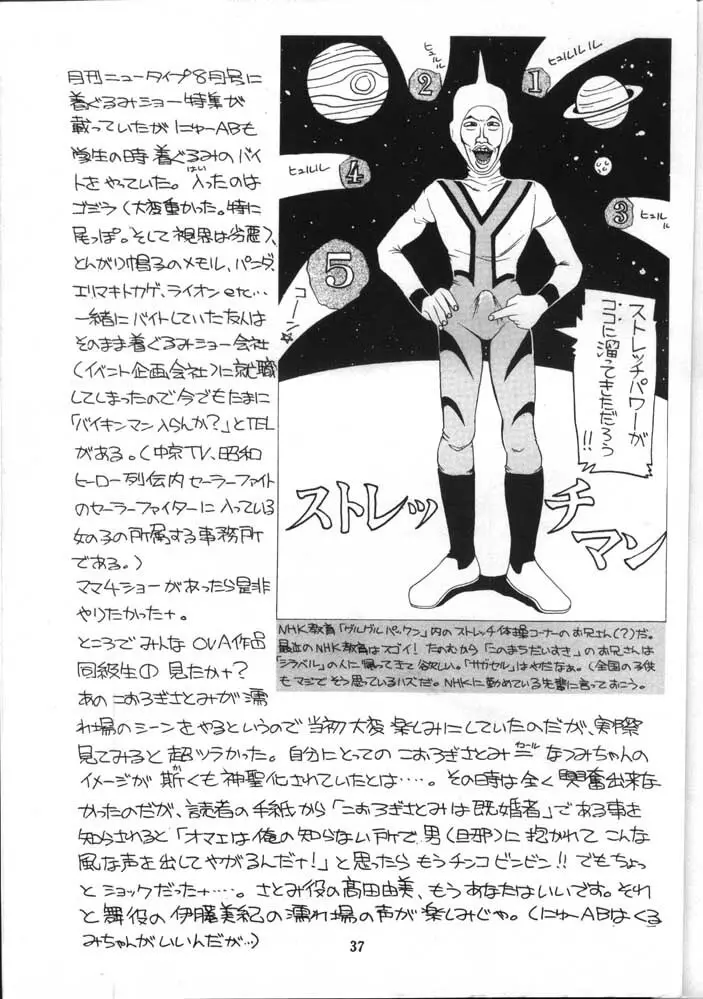 月刊ニュータイプ8月号に
着ぐるみショー特集が
載っていたがにゅーABも
学生の時着ぐるみのバイ
トをやっていた。入ったのは
はい
ゴジラ(大変重かった。特に
尾っぽ。そして視界は劣悪)、
とんがり帽子のメモル、パンダ、
エリマキトカゲ、ライオンetc…
一緒にバイトしていた友人は
そのまま着ぐるみショー会社
(イベント企画会社)に就職
してしまったので今でもたまに
「バイキンマン入らんか?」とTEL
がある。(中京TV、昭和
ヒーロー列伝内セーラーファイト
のセーラーファイターに入っている
女の子の所属する事務所
である。)
ママ4ショーがあったら是非
やりたかったナ。
ところでみんなOVA作品
同級生の見たかナ?
あのこおろぎさとみが濡
れ場のシーンをやるというので当初大変楽しみにしていたのだが、実際
見てみると超ツラかった。自分にとってのこおろぎさとみ=なつみちゃんの
イコール
イメージが斯くも神聖化されていたとは…。その時は全く興奮出来な
か
かったのだが、読者の手紙から「こおろぎさとみは既婚者」である事を
知らされると「オマエは俺の知らない所で男(旦那)に抱かれてこんな
風な声を出してやがるんだナ!」と思ったらもうチンコビンビン!!でもちょっ
とショックだったナ…。さとみ役の高田由美、もうあなたはいいです。それ
と舞役の伊藤美紀の濡れ場の声が楽しみじゃ。(にゅーABはくる
みちゃんがいいんだが…)
ヒュルル
2
ヒュルルルル
1
ヒュルルル
4
3
ヒュルルル
5
コーン☆
ストレッチパワーが
ココに溜ってきただろう
!!
ストレッチ
マン
NHK教育「グルグルパックン」内のストレッチ体操コーナーのお兄さん(?)だ。
最近のNHK教育はスゴイ!たのむから「このまちだいすき」のお兄さんは
「シラベル」の人に帰ってきて欲しい。「サガセル」はやだなぁ。(全国の子供
もマジでそう思っているハズだ。NHKに勤めている先輩に言っておこう。
37